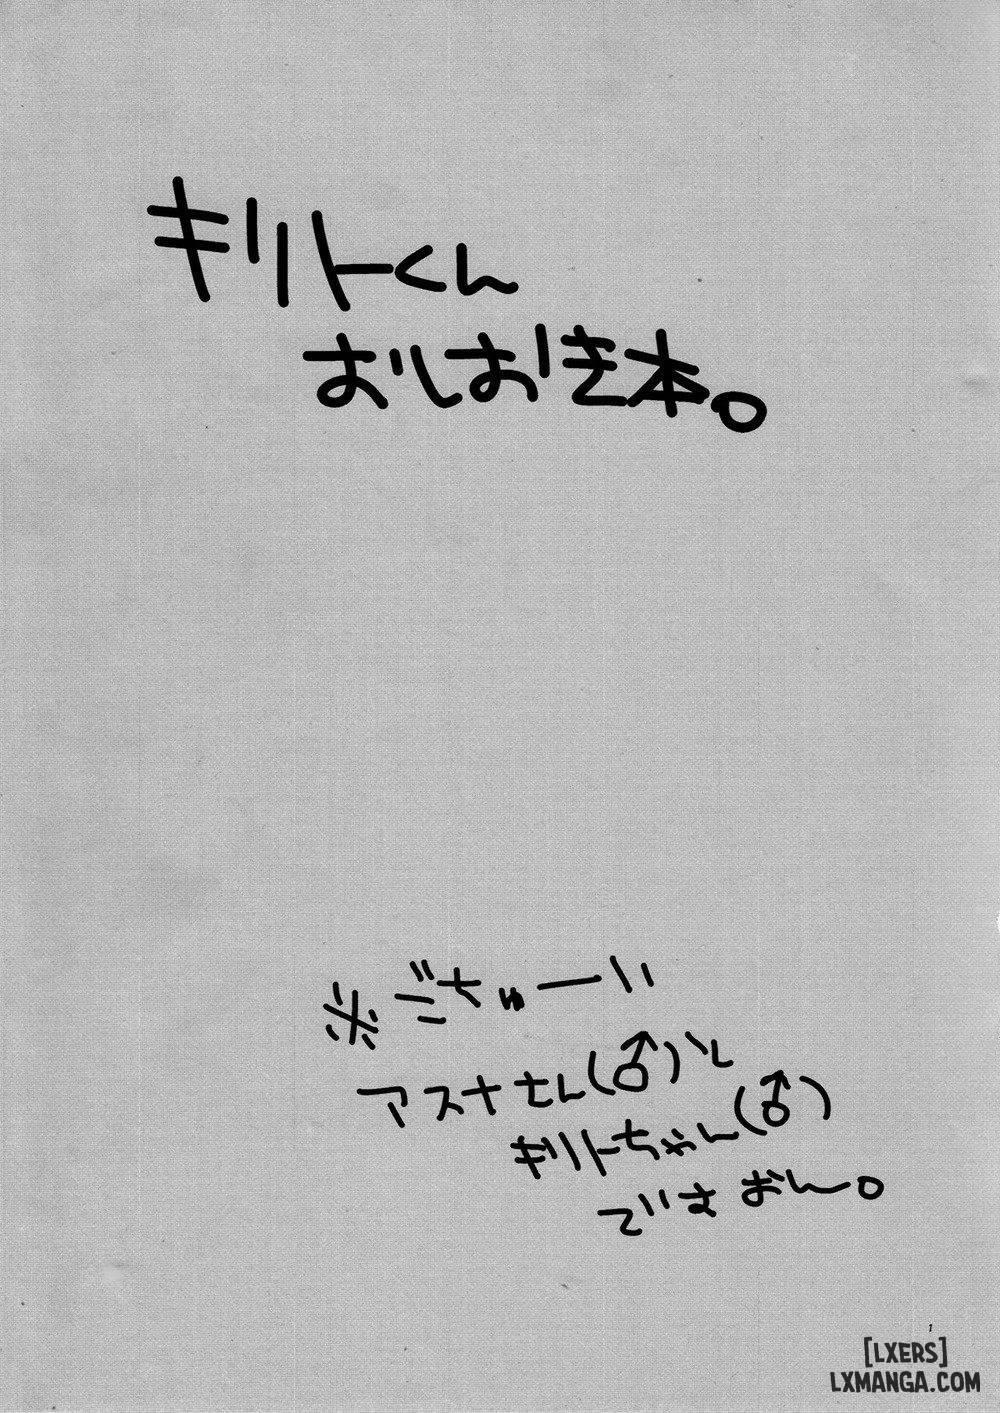 キリトくん
おしおき本。
※ごちゅーい
アスナさん(♂)と
キリトちゃん(♂)
でさあん。
1
[LXERS]
LXMANGA.COM